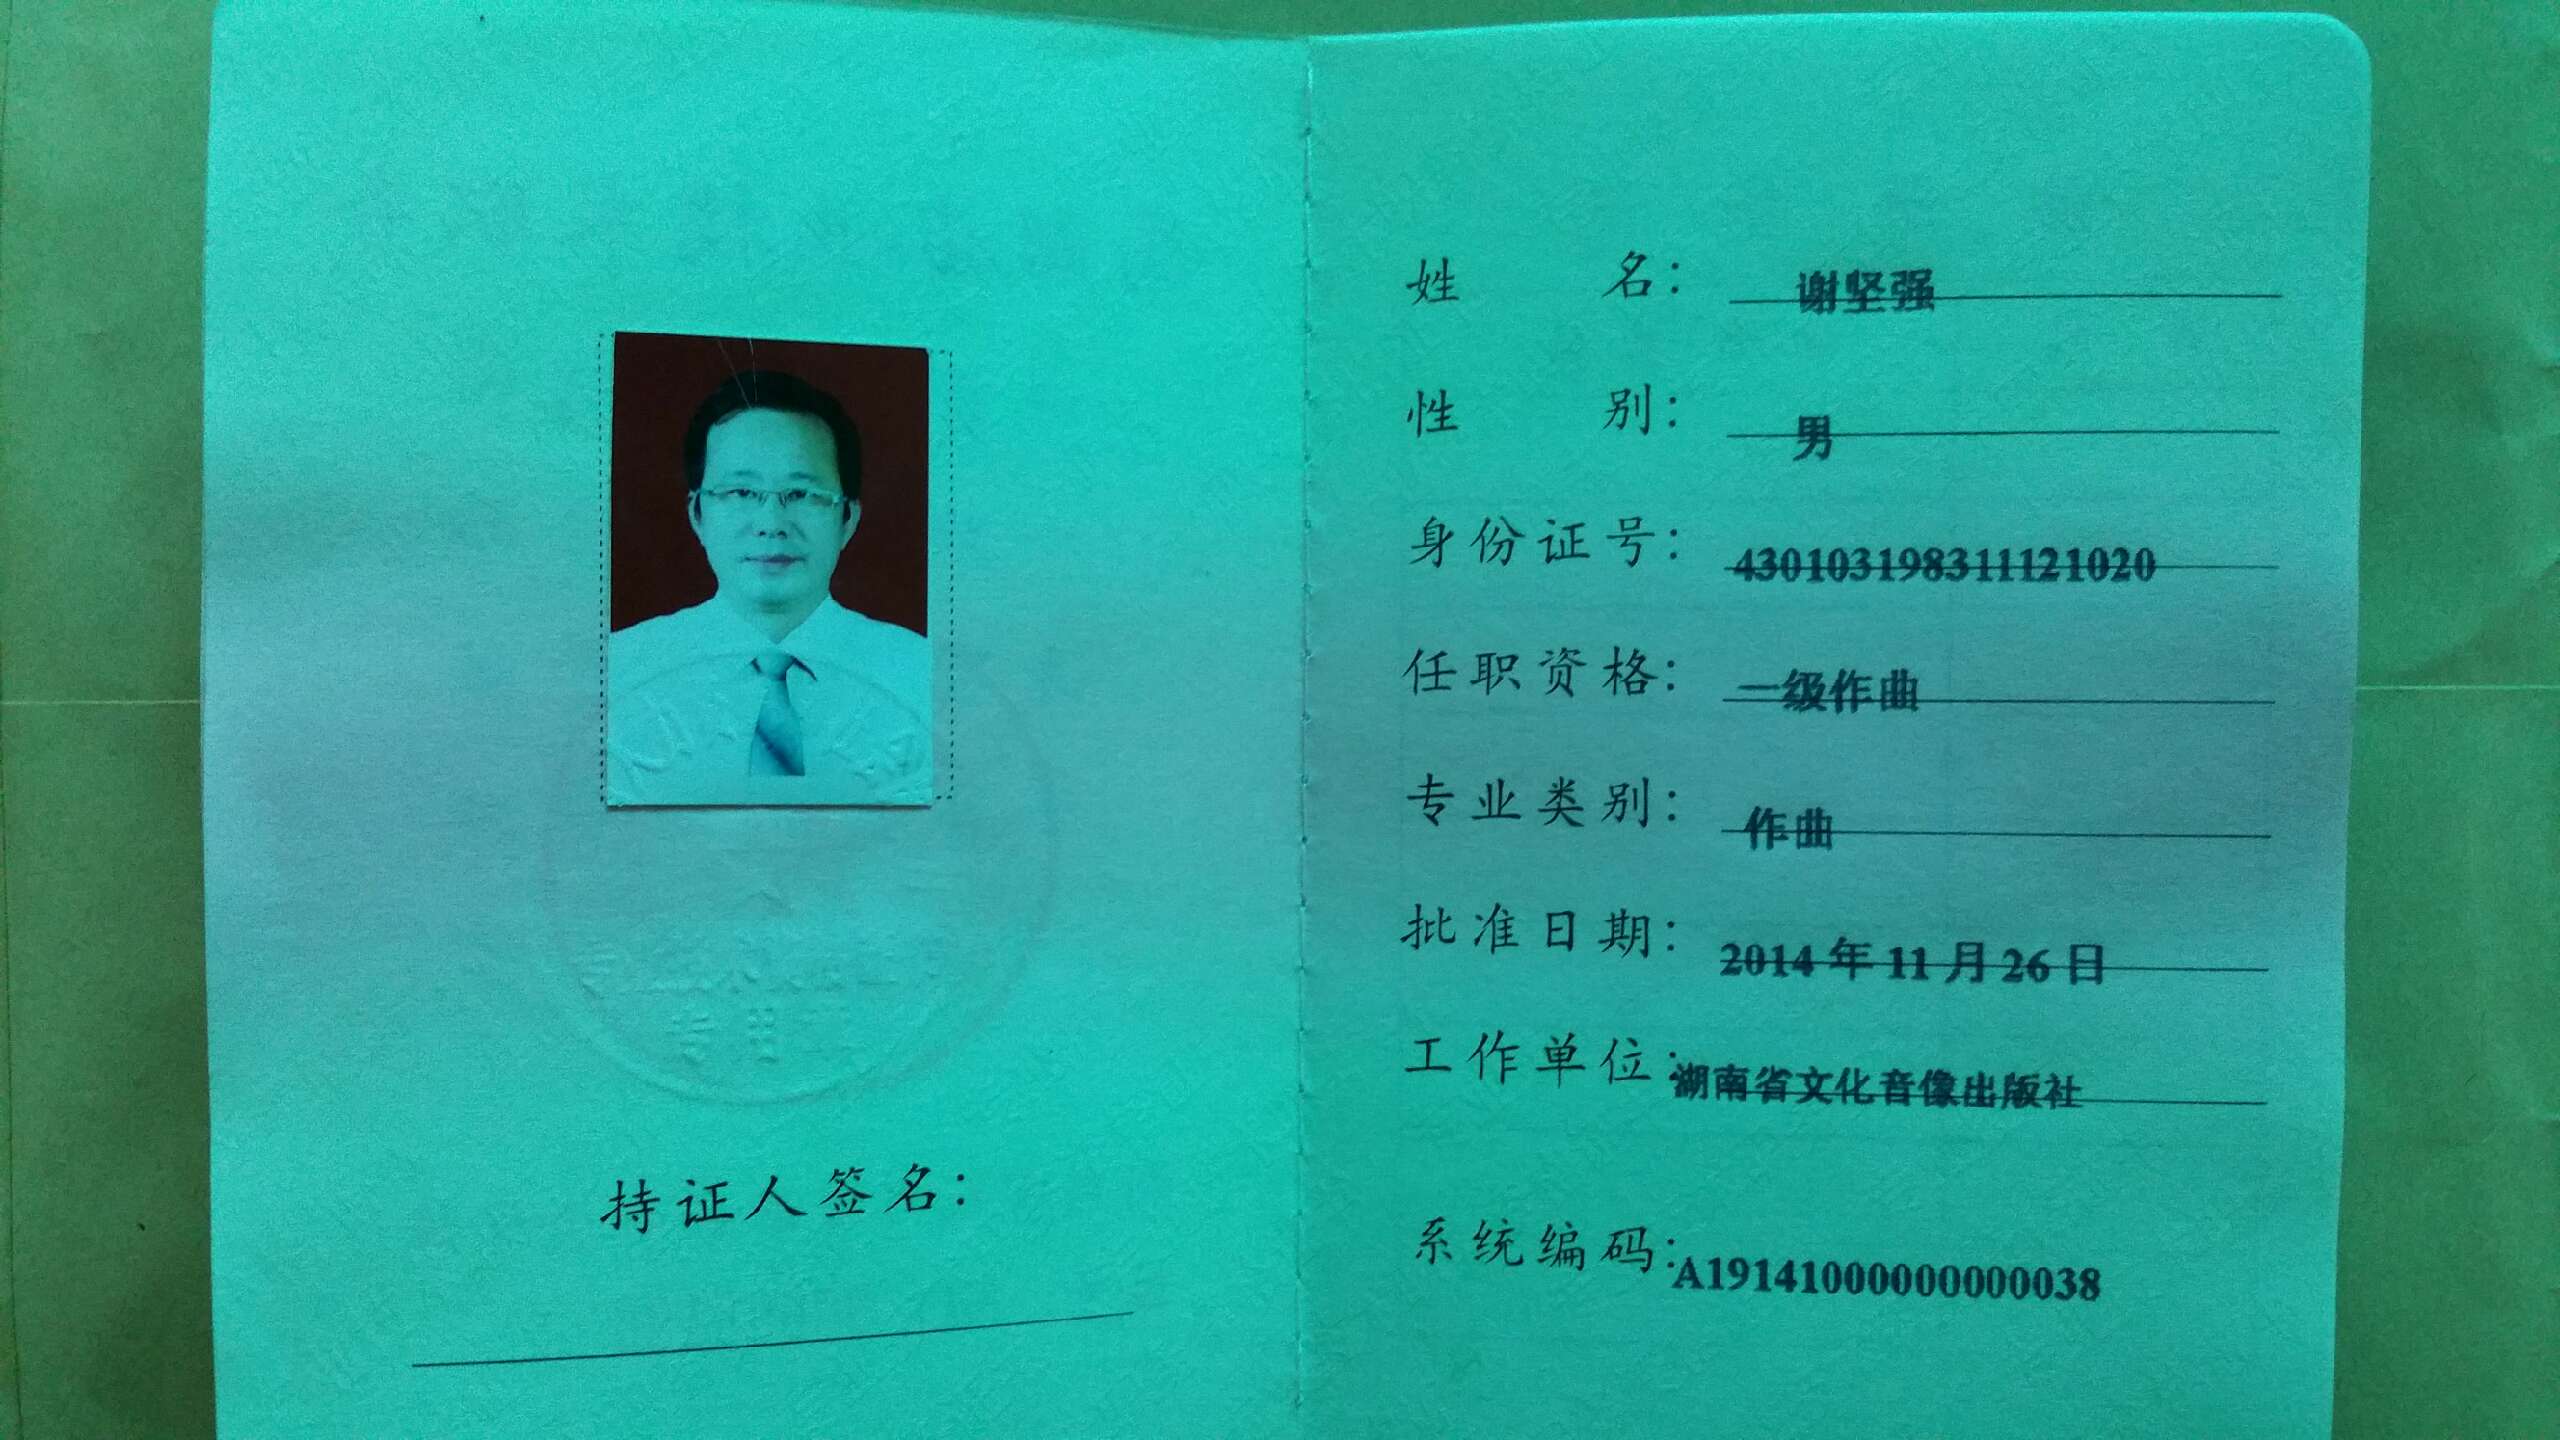 持证人签名：
姓名： 谢坚强
性别： 男
身份证号： 430103198311121020
任职资格： 一级作曲
专业类别： 作曲
批准日期： 2014年11月26日
工作单位：湖南省文化音像出版社
系统编码：A19141000000000038